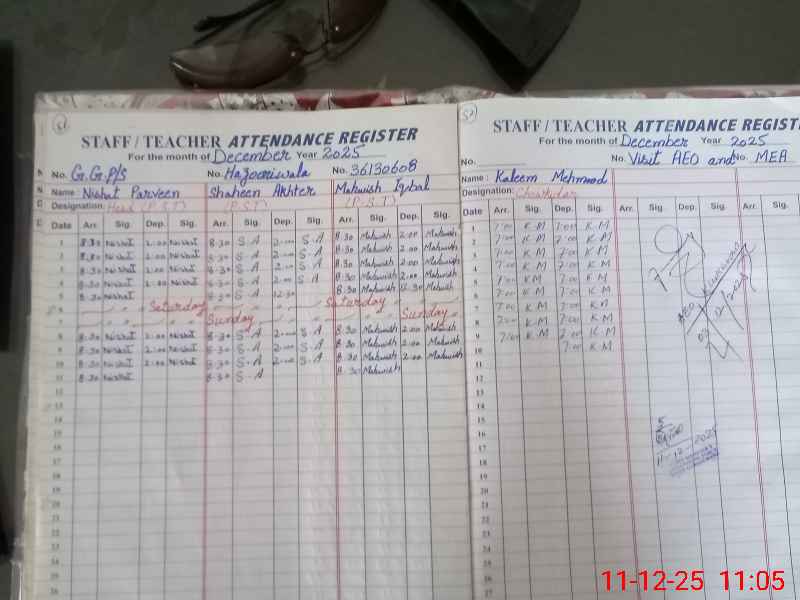 51
STAFF / TEACHER ATTENDANCE REGISTER
For the month of December Year 2025
No. G.G.P/S No. Hazooriwala No. 36130608
Name: Nishat Parveen Shaheen Akhter Mahwish Iqbal
Designation: Head (P.S.T) (P.S.T) (P.S.T)
Date Arr. Sig. Dep. Sig. Arr. Sig. Dep. Sig. Arr. Sig. Dep. Sig.
1 8.30 Nishat 2:00 Nishat 8.30 S.A 2:00 S.A 8.30 Mahwish 2:00 Mahwish
2 8.30 Nishat 2:00 Nishat 8.30 S.A 2:00 S.A 8.30 Mahwish 2:00 Mahwish
3 8.30 Nishat 2:00 Nishat 8.30 S.A 2:00 S.A 8.30 Mahwish 2:00 Mahwish
4 8.30 Nishat 2:00 Nishat 8.30 S.A 2:00 S.A 8.30 Mahwish 2:00 Mahwish
5 8.30 Nishat 8.30 S.A 12:30 8.30 Mahwish Mahwish
6 Saturday Saturday
Sunday Sunday
8 8.30 Nishat 2:00 Nishat 8.30 S.A 2:00 S.A 8.30 Mahwish 2:00 Mahwish
9 8.30 Nishat 2:00 Nishat 8.30 S.A 2:00 S.A 8.30 Mahwish 2:00 Mahwish
10 8.30 Nishat 2:00 Nishat 8.30 S.A 2:00 S.A 8.30 Mahwish 2:00 Mahwish
11 8.30 Nishat 8.30 S.A 8.30 Mahwish
12
13
14
15
16
17
18
19
20
21
22
23
24
25
26
STAFF / TEACHER ATTENDANCE REGISTER
For the month of December Year 2025
No. No. Visit AEO and No. MEA
Name: Kaleem Mehmood
Designation: Chowkidar
Date Arr. Sig. Dep. Sig. Arr. Sig. Dep. Sig. Arr. Sig.
1 7:00 K.M 7:00 K.M
2 7:00 K.M 7:00 K.M
3 7:00 K.M 7:00 K.M
4 7:00 K.M 7:00 K.M
5 7:00 K.M 7:00 K.M
6 7:00 K.M 7:00 K.M
7 7:00 K.M 7:00 K.M
8 7:00 K.M 7:00 K.M
9 7:00 K.M 7:00 K.M
10 7:00 K.M
11
12
13
14
15
16
17
18
19
20
21
22
23
24
25
26
27
AEO
11-12-2025
11-12-25 11:05